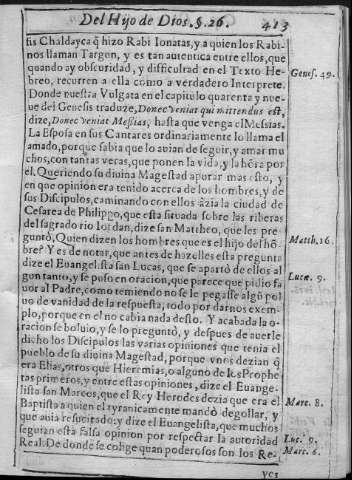 Del Hijo de Dios. §. 26. 413
sis Chaldayca q̃ hizo Rabi Ionatas, y a quien los Rabi-
nos llaman Targun, y es tan autentica entre ellos, que
quando ay obscuridad, y dificultad en el Texto He-
breo, recurren a ella como a verdadero Interprete. Genes. 49.
Donde nuestra Vulgata en el capitulo quarenta y nue-
ue del Genesis traduze, Donec veniat qui mittendus est,
dize, Donec veniat Messias, hasta que venga el Messias.
La Esposa en sus Cantares ordinariamente lo llama el
amado, porque sabia que lo auian de seguir, y amar mu
chos, con tantas veras, que ponen la vida, y la hõra por
el. Queriendo su diuina Magestad apurar mas esto, y
en que opinion era tenido acerca de los hombres, y de
sus Discipulos, caminando con ellos àzia la ciudad de
Cesarea de Philippo, que esta situada sobre las riberas
del sagrado rio Iordan, dize san Mattheo, que les pre-
guntò, Quien dizen los hombres que es el hijo del hõ- Matth. 16.
bre? Y es de notar, que antes de hazelles esta pregunta
dize el Euangelista san Lucas, que se apartò de ellos al Lucæ. 9.
gun tanto, y se puso en oracion, que parece que pidio fa
uor al Padre, como temiendo no se le pegasse algũ pol
uo de vanidad de la respuesta, todo por darnos exem-
plo, porque en el no cabia nada desto. Y acabada la o-
racion se boluio, y se lo preguntò, y despues de auerle
dicho los Discipulos las varias opiniones que tenia el
pueblo de su diuina Magestad, porque vnos dezian q̃
era Elias, otros que Hieremias, o alguno de los Prophe
tas primeros, y entre estas opiniones, dize el Euange-
lista san Marcos, que el Rey Herodes dezia que era el Marc. 8.
Baptista a quien el tyranicamente mandò degollar, y
que auia resucitado; y dize el Euangelista, que muchos
seguian esta falsa opinion por respectar la autoridad Luc. 9.
Real: De donde se colige quan poderosos son los Re- Marc. 6.
yes